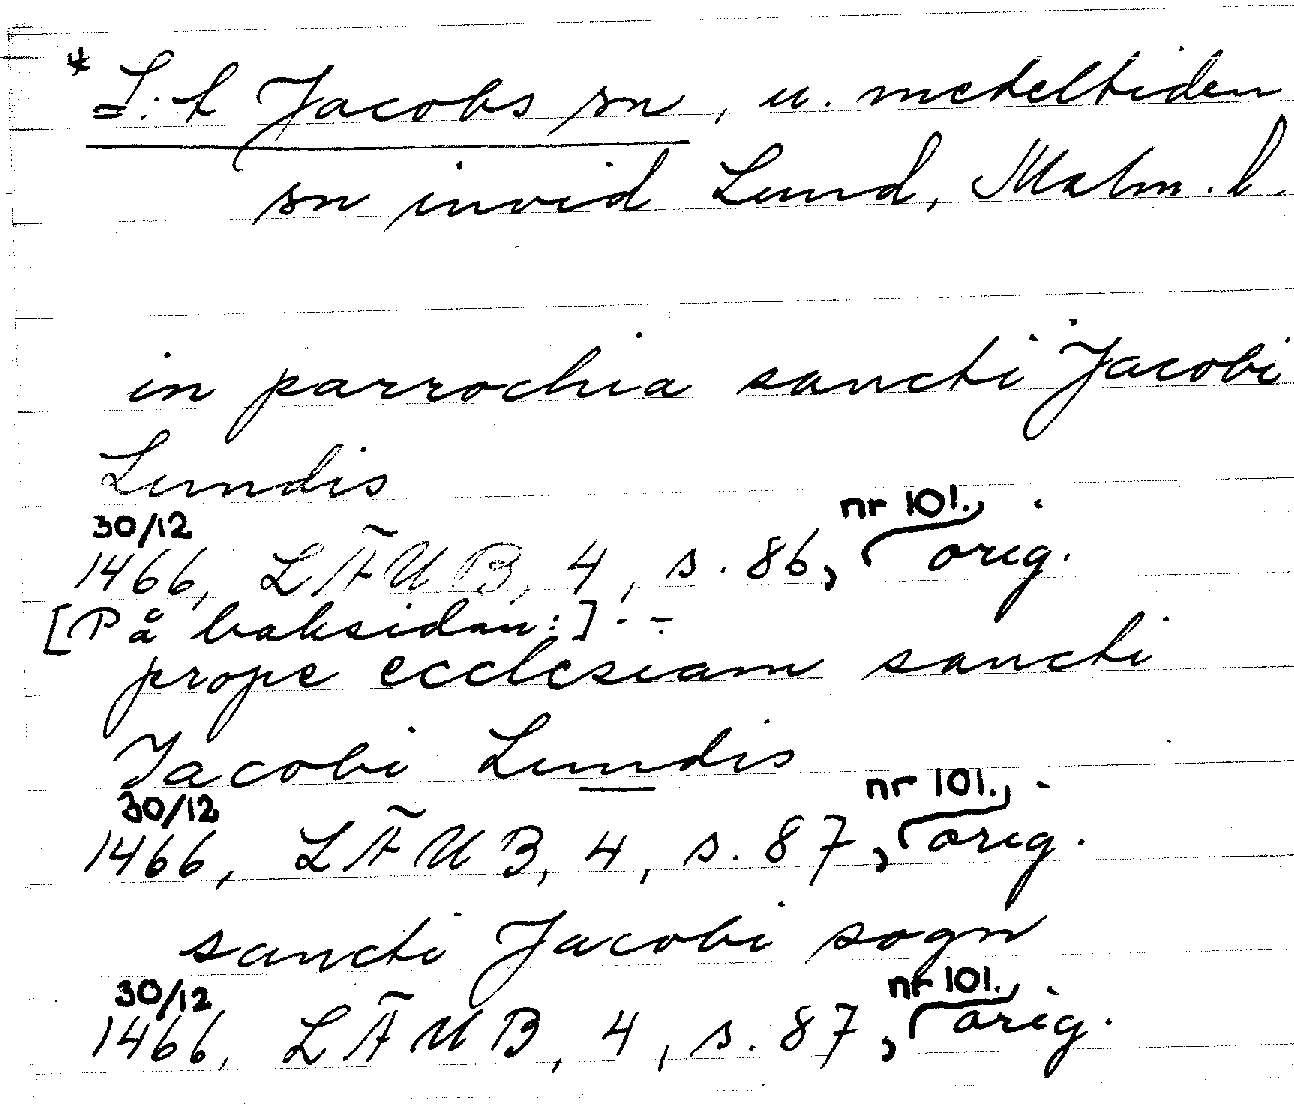 * S:t Jacobs sn, u. medeltiden
sn invid Lund, Malm. l.
in parrochia sancti Jacobi
Lundis
30/12 nr 101.,
1466, LÄUB, 4, s. 86, orig.
[På baksidan:] - -
prope ecclesiam sancti
Jacobi Lundis
30/12 nr 101.,
1466, LÄUB, 4, s. 87, orig.
sancti Jacobi sogn
30/12 nr 101.,
1466, LÄUB, 4, s. 87, orig.